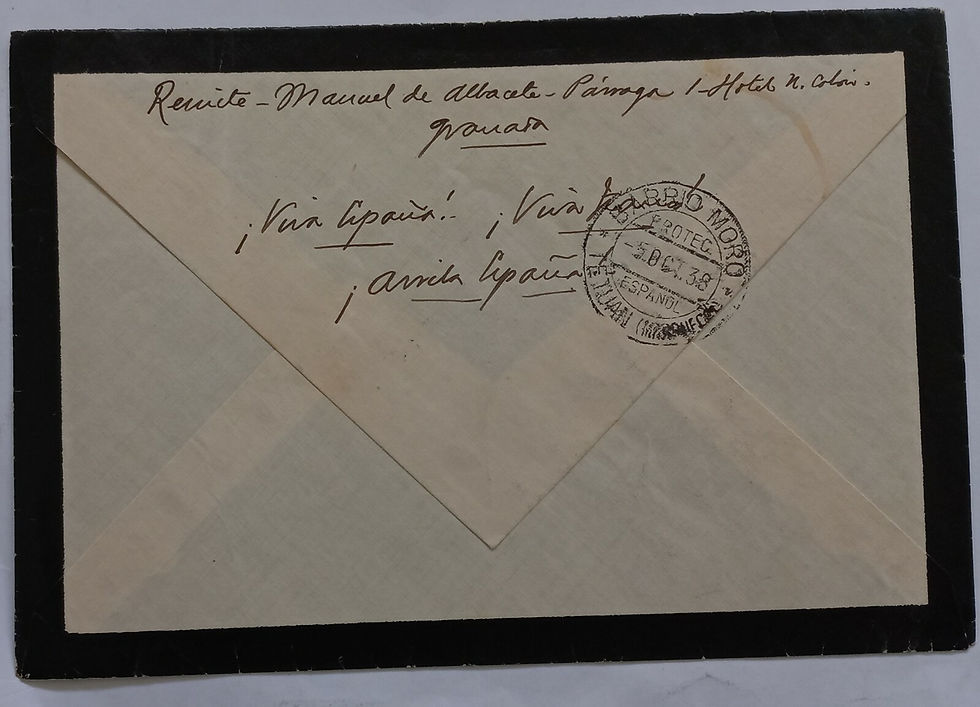 Remite - Manuel de Albacete - Párraga 1 - Hotel N. Colón.
Granada
¡Viva España! ¡Viva Franco!
¡Arriba España!
BARRIO MORO
PROTEC.
-5.OCT.38
ESPAÑOL
TETUAN (MARRUECOS)